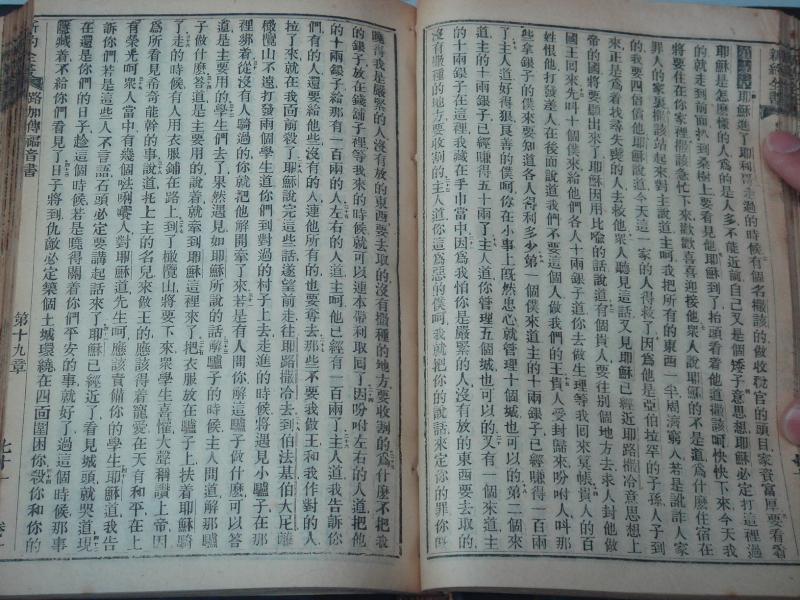 耶穌進了耶利
過的時候有個名撒該的做收稅官的頭目家資富厚要看看
耶穌是怎麼樣的人爲的是人多不能近前自己又是個矮子意思想耶穌必定打這裡過
的就走到前面扒到桑樹上要看見他耶穌到了抬頭看着他道撒該呵快快下來今天我
將要住在你家裡撒該急忙下來歡歡喜喜迎接他衆人說耶穌的不是道爲什麽住宿在
罪人的家裏撒該站起來對主說道主呵我把所有的東西一半周濟窮人若是訛詐人家
的我要四倍償他耶穌說道今天這一家的人得救了因爲他是亞伯拉罕的子孫人子到
來正是爲着我尋失喪的人去救他衆人聽見這話又見耶穌已經近耶路撒冷意思想上
帝的國將要顯出來了耶穌因用比喩的話說道有個貴人要往別個地方去求人封他做
國王回來先叫十個僕來給他們各人十兩銀子道你去做生理等我回來算帳貴人的百
姓恨他打發差人在後面說道我們不要這個人做我們的王貴人受封歸來吩咐人叫那
些拿銀子的僕來要知道各人各利多少第一個僕來道主的十兩銀子已經賺得一百兩
了主人道好得狠良善的僕呵你在小事上旣然忠心就管理十個城也可以的第二個來
道主的十兩銀子已經賺得五十兩了主人道你管理五個城也可以的又有一個來道主
的十兩銀子在這裡我藏在手巾當中因爲我怕你是嚴緊的人沒有放的東西要去取的
沒有撒種的地方要收割的主人道你這爲惡的僕呵我就把你的說話來定你的罪你旣
曉得我是嚴緊的人沒有放的東西要去取的沒有撒種的地方要收割的爲什麽不把我
的銀子放在錢舖子裡等我來的時候就可以連本帶利取回了因吩咐左右的人道把他
的十兩銀子給那有一百兩的人左右的人道主呵他已經有一百兩了主人道我告訴你
們有的人還要給他些沒有的人連他所有的也要奪去那些不要我做王和我作對的人
拉了來就在我面前殺了耶穌說完這些話遂望前走往耶路撒冷去到伯法基伯大尼離
橄欖山不遠打發兩個學生道你們到對過的村子上去走進的時候將遇見小驢子在那
裡綁着從沒有人騎過的你就把他解開牽了來若是有人問你解這驢子做什麽可以答
道是主要用的學生們去了果然遇見如耶穌所說的話解驢子的時候主人問道解那驢
子做什麽答道是主要用的說着就牽到耶穌這裡來了把衣服放在驢子上扶着耶穌騎
了走的時候有人用衣服鋪在路上到了橄欖山將要下來衆學生喜懽大聲稱讚上帝因
爲所看見希奇能幹的事說道托上主的名兒來做王的應該得着寵愛在天有和平在上
有榮光呵衆人當中有幾個㕸唎㘔人對耶穌道先生呵應該責備你的學生耶穌道我告
訴你們若是這些人不言語石頭必定要講起話來了耶穌已經近了看見城頭就哭道現
在還是你們的日子趁這個時候若是曉得關着你們平安的事就好了過這個時候那事
隱藏着不給你們看見了日子將到仇敵必定築個土城環繞在四面圍困你殺你和你的
新約全書 路加傳福音書 第十九章 七十一